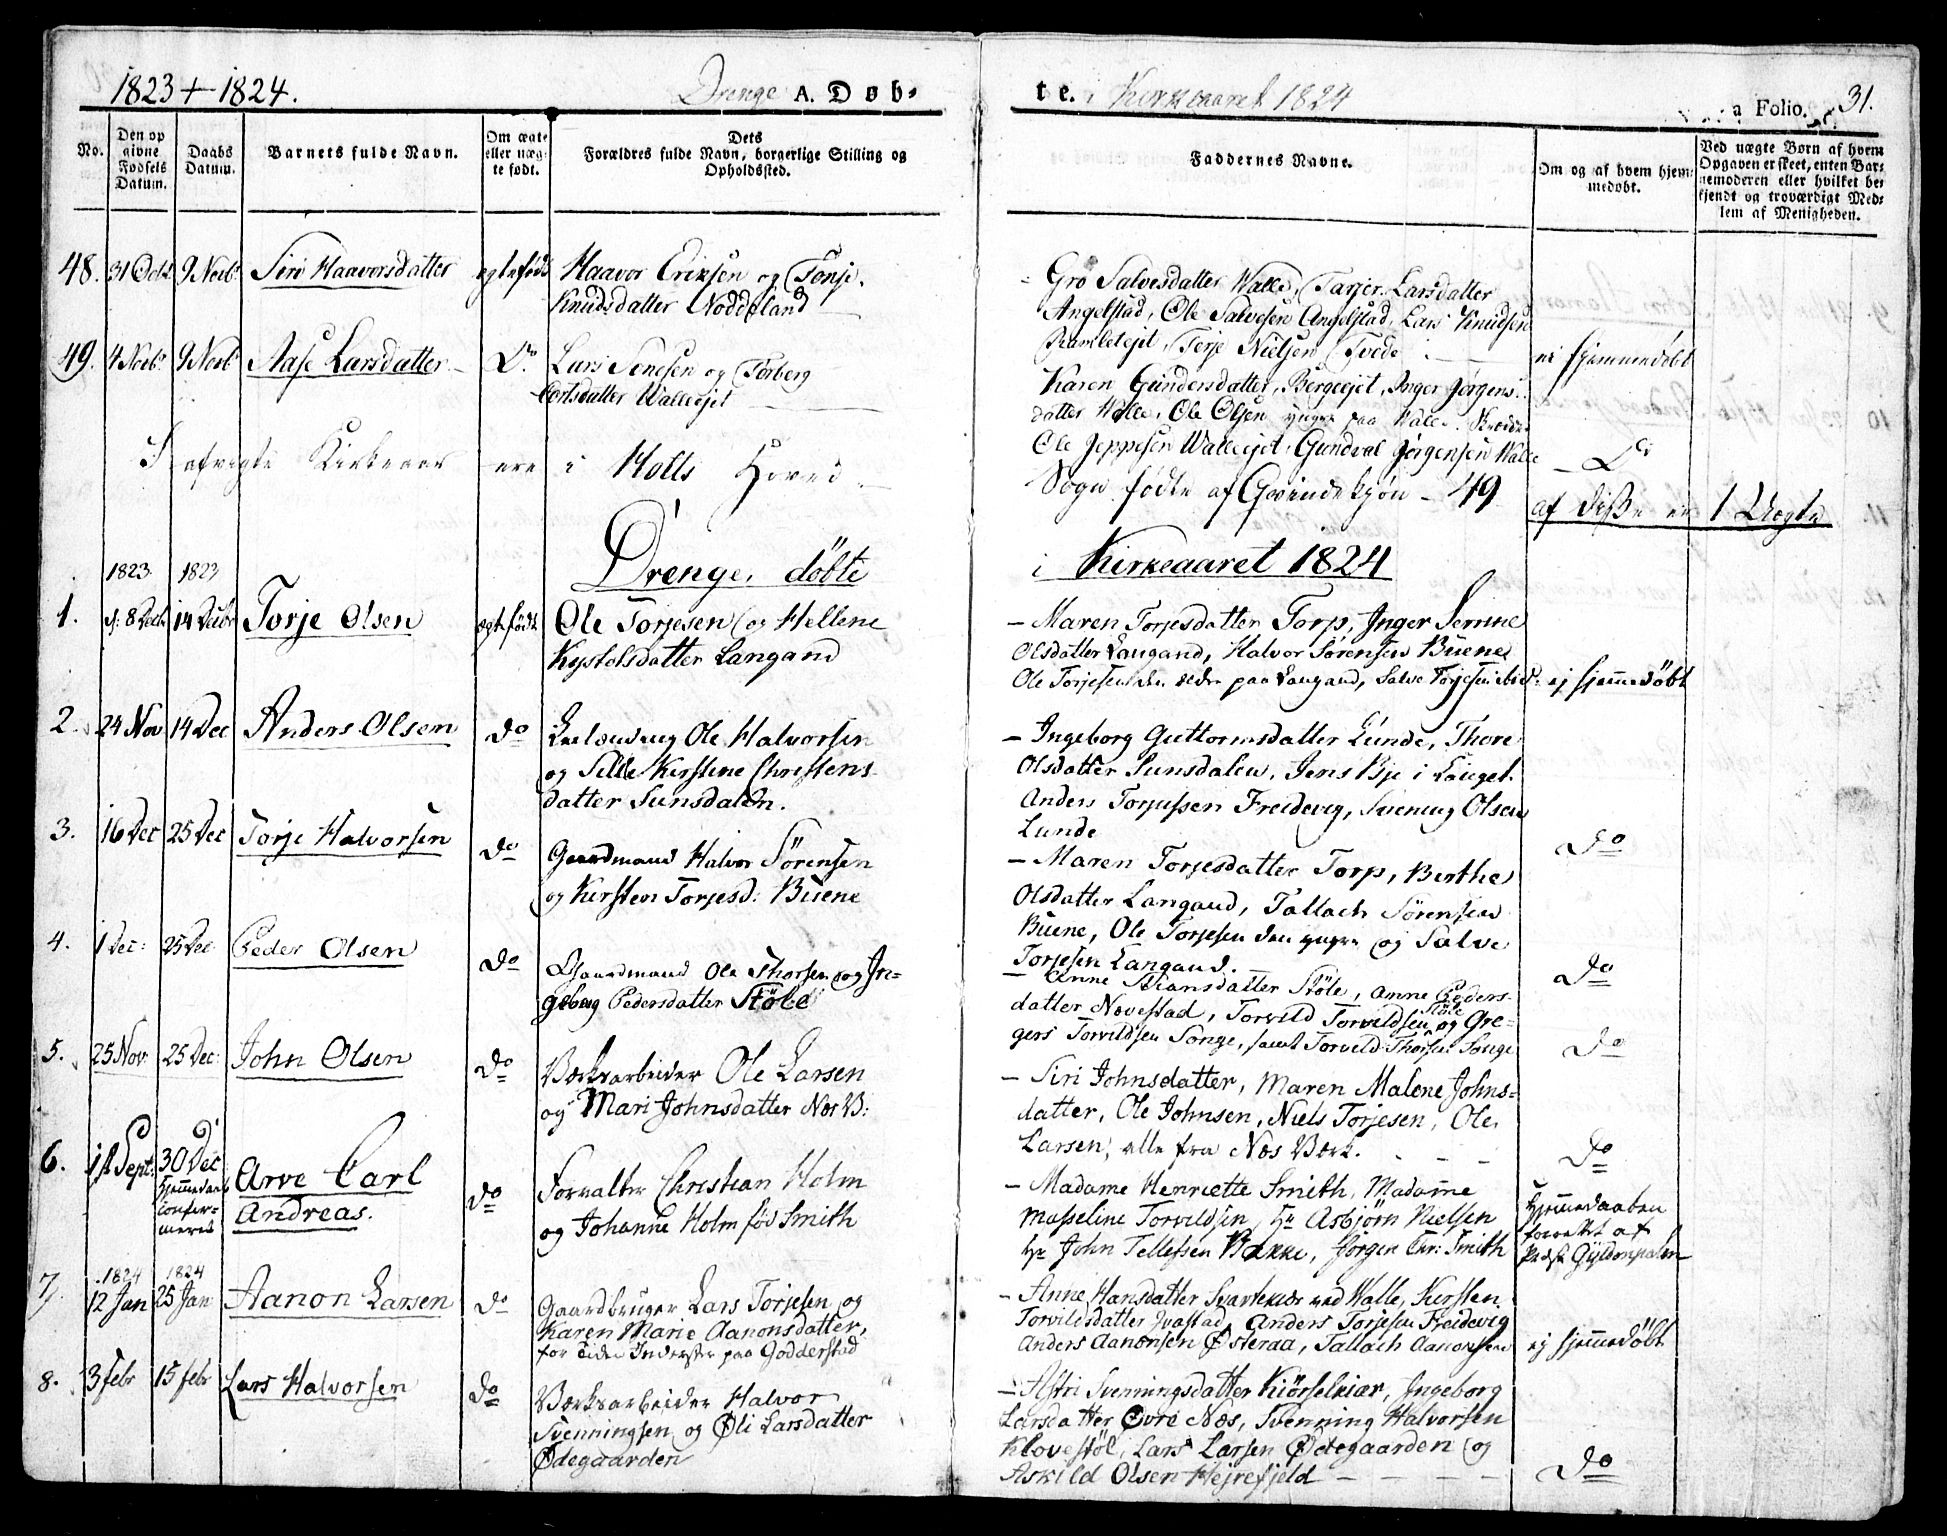 1823 + 1824.
Drenge A. Døb-
te. i Kirkeaaret 1824
a Folio. 31.
No.
Den op
givne
Fødsels
Datum.
Daabs
Datum.
Barnets fulde Navn.
Om ægte
eller uæg-
te født.
Dets
Forældres fulde Navn, borgerlige Stilling og
Opholdssted.
Faddernes Navne.
Om og af hvem hjem-
medøbt.
Ved uægte Børn af hvem
Opgaven er skeet, enten Bar-
nemoderen eller hvilket be-
kjendt og troværdigt Med-
lem af Menigheden.
48. 31 Octbr 9 Novbr Siri Haavorsdatter egtefødt Haavor Eriksen og Tonje
Knudsdatter Noddeland
Gro Salvesdatter Walle, Tarjer Larsdatter
Angelstad, Ole Salvesen Angelstad, Lars Knudsen
Ramleiejet, Terje Nielsen Tvede ei hjemmedøbt
49. 4 Novbr 9 Novbr Aase Larsdatter Do Lars Tenesen og Torberg
datter Walleejet
Karen Gundersdatter, Bergeejet, Inger Jørgens-
datter Walle, Ole Olsen yngre paa Walle,
Ole Jeppesen Walleejet, Gundval Jørgensen Walle Do
I afvigte Kirkeaar ere i Holts Hoved
Sogn fødte af Qvindekjøn - 49
af disse er 1 Uægte
Drenge, døbte
i Kirkeaaret 1824
1823 1823
1. d: 8 Decbr 14 Decbr Torje Olsen egtefødt Ole Torjesen og Hellene
Kystolsdatter Langand
- Maren Torjesdatter Torp, Inger Serine
Olsdatter Laugand, Halvor Sørensen Buene
Ole Torjesen den eldre paa Laugand, Salve Torjesen ibid: ej hjemmedøbt
2. 24 Nov 14 Dec Anders Olsen Do Ole Halvorsen
og Sille Kirstine Christens-
datter Sunsdalen.
- Ingeborg Guttormsdatter Lunde, Thore
Olsdatter Sunsdalen, Jens Bje i Lauget
Anders Torjussen Freidevig, Svening Olsen
Lunde Do
3. 16 Dec 25 Dec Torje Halvorsen Do Gaardmand Halvor Sørensen
og Kirsten Torjesd: Buene
- Maren Torjesdatter Torp, Birthe
Olsdatter Langaud, Tallach Sørensen
Buene, Ole Torjesen den yngre og Salve
Torjesen Langaud. Do
4. 1 Dec: 25 Dec Peder Olsen Do Gaardmand Ole Thorsen og In-
geborg Pedersdatter Støle
- Anne Stiansdatter Støle, Anne Peders-
datter Novestad, Torvild Torvildsen Støle og Gre-
gers Torvildsen Songe, samt Torveld Thorsen Songe Do
5. 25 Nov 25 Dec: John Olsen Do Værksarbeider Ole Larsen
og Mari Johnsdatter Næs V:
- Siri Johnsdatter, Maren Malene Johns-
datter, Ole Johnsen, Niels Torjesen, Ole
Larsen, alle fra Næs Værk. Do
6. 1st Sept: 30 Dec
hjemmedaab
confir-
meret Arve Carl
Andreas. Do Forvalter Christian Holm
og Johanne Holm fød Smith
- Madame Henriette Smith, Madame
Masseline Torvildsen, Hr Asbjørn Nielsen
Hr John Tellefsen Bakke, Jørgen Chr: Smith
Hjemmedaaben
forrettet af
Præst Gyldenpalm
1824 1824
7. 12 Jan 25 Jan Aanon Larsen Do Gaardbruger Lars Torjesen og
Karen Marie Aanonsdatter,
for Tiden Inderster paa Godderstad
- Anne Hansdatter Svartekær ved Walle, Kirsten
Torvildsdatter Jvastad, Anders Torjesen Freidevig
Anders Aanonsen Østeraa, Tallach Aanonsen ej hjemmedøbt
8. 3 febr 15 febr Lars Halvorsen Do Værksarbeider Halvor
Svenningsen og Øli Larsdatter
Ødegaarden
- Astri Svenningsdatter Kiørselkiær, Ingeborg
Larsdatter Øvre Næs, Svenning Halvorsen
Klovestøl, Lars Larsen Ødegaarden og
Askild Olsen Hejrefjeld Do